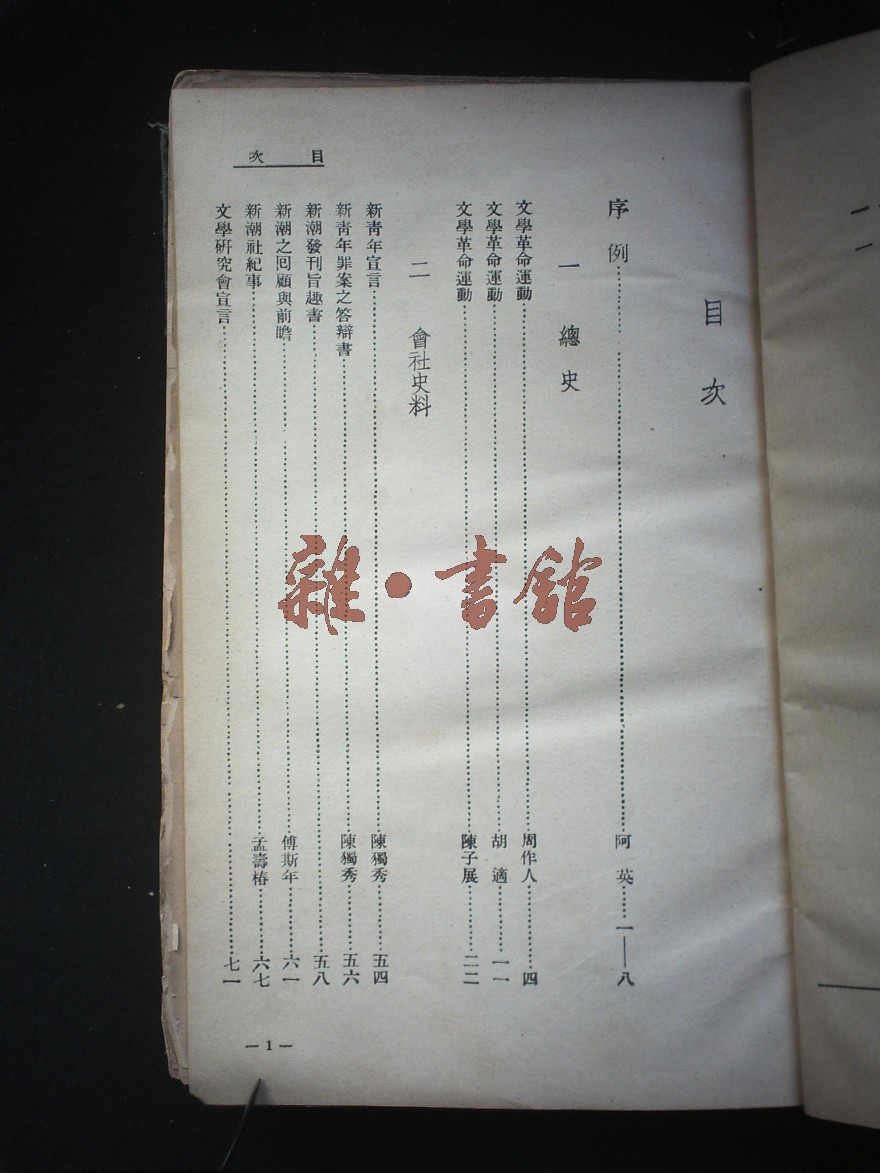 目次
目次
序例……………………阿英……一——八
一 總史
文學革命運動……………………周作人……四
文學革命運動……………………胡適……一一
文學革命運動……………………陳子展……二二
二 會社史料
新青年宣言……………………陳獨秀……五四
新青年罪案之答辯書……………………陳獨秀……五六
新潮發刊旨趣書……………………五八
新潮之回顧與前瞻……………………傅斯年……六一
新潮社紀事……………………孟壽椿……六七
文學研究會宣言……………………七一
— 1 —
雜·書館